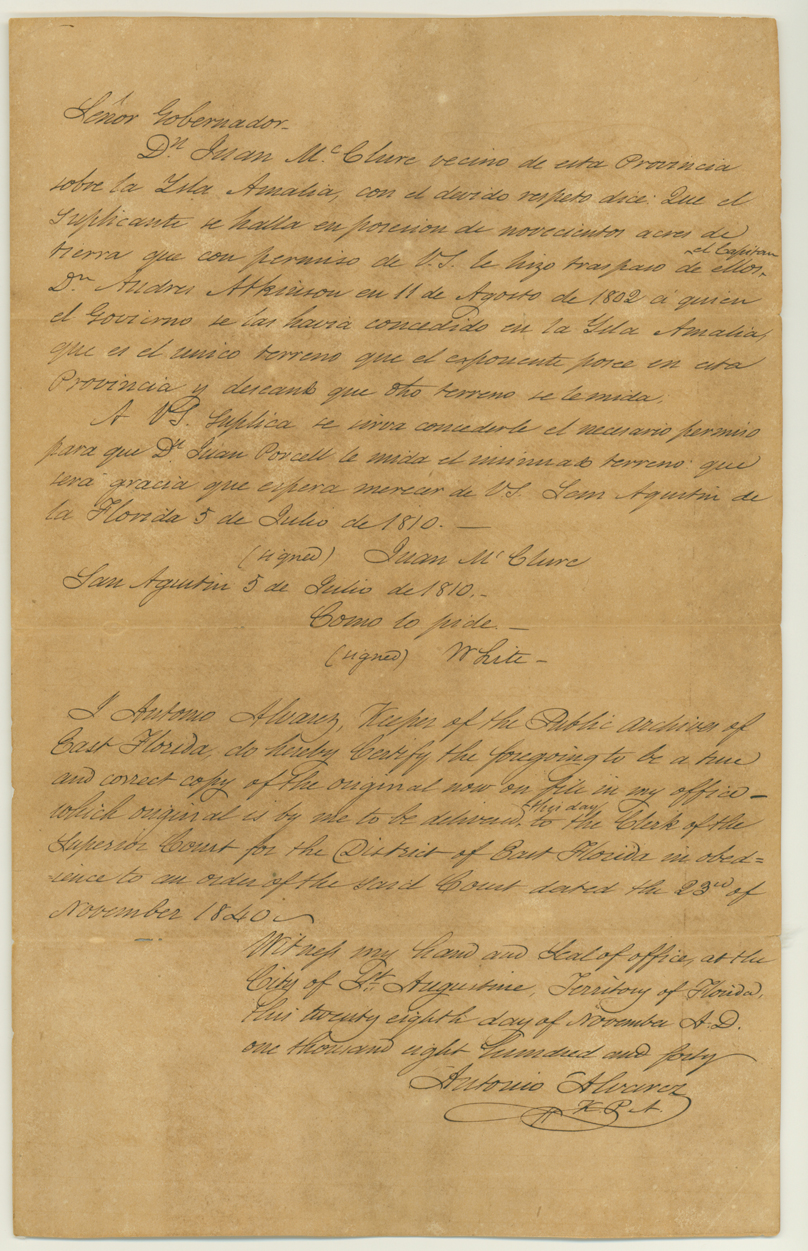 Señor Gobernador_
Dn. Juan Mc. Clure vecino de esta Provincia
sobre la Ysla Amalia, con el devido respeto dice: Que el
Suplicante se halla en posesion de novecientos acres de
tierra que con permiso de V.S. le hizo traspaso de ellos el Capitan
Dn. Andres Atkinson en 11 de Agosto de 1802 á quien
el Govierno se las havia concedido en la Ysla Amalia,
que es el unico terreno que el exponente posee en esta
Provincia y deseando que dho terreno se le mida.
A VS. Suplica se sirva concederle el necesario permiso
para que Dn. Juan Porcell le mida el insinuado terreno: que
sera gracia que espera merecer de VS. San Agustin de
la Florida 5 de Julio de 1810. —
(signed) Juan Mc Clure
San Agustin 5 de Julio de 1810._
Como lo pide. —
(signed) White_
I Antonio Alvarez, Keeper of the Public archives of
East Florida, do hereby Certify the foregoing to be a true
and correct copy of the original now on file in my office —
which original is by me to be delivered this day to the Clerk of the
Superior Court for the District of East Florida in obed=
ience to an order of the said Court dated the 23rd of
November 1840.
Witness my hand and Seal of office, at the
City of St. Augustine, Territory of Florida,
this twenty eighth day of November A.D.
one thousand eight hundred and forty
Antonio Alvarez
K. P. A.